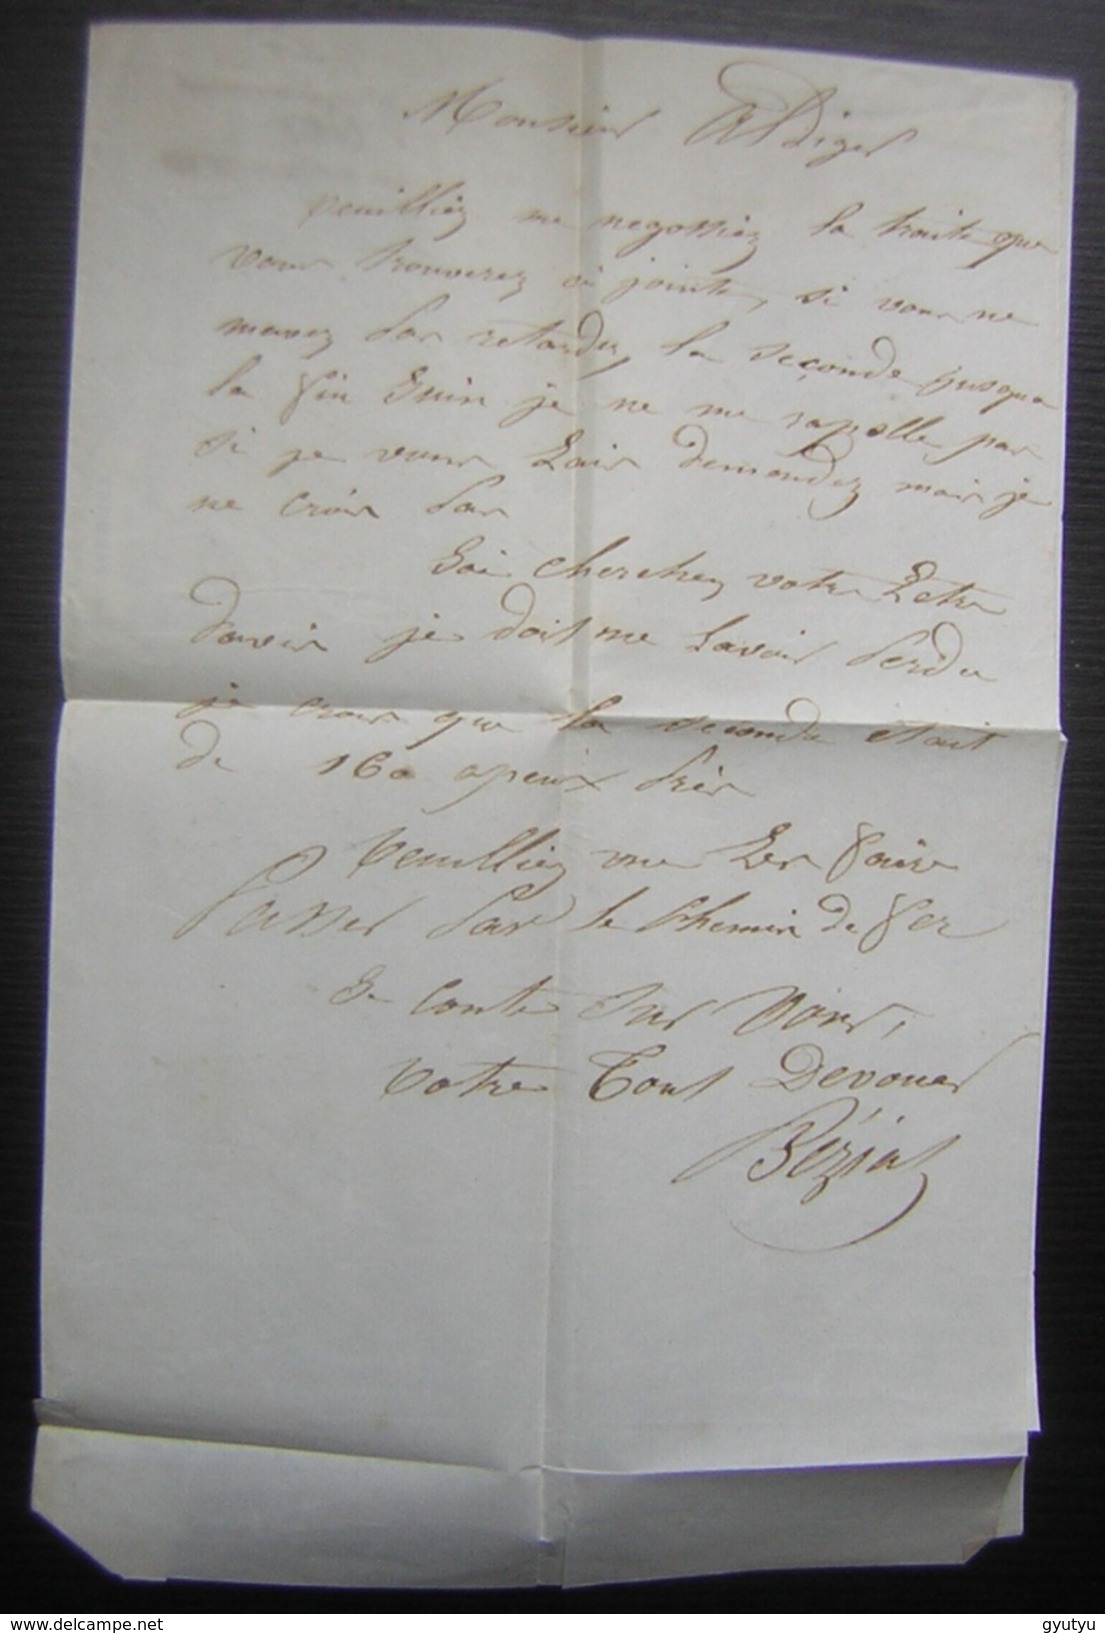 Monsieur Aldiger
veuilliez me negossiez la traite que
vous trouverez ci jointe, si vous ne
mavez pas retardez la seçonde jusqua
la fin Juin je ne me rapelle pas
si je vous lais demandez mais je
ne crois pas
Jai cherchez votre Letre
davis je doit me lavoir perdu
je crois que la seconde etait
de 160 apeux près
veuilliez me Les faire
Passer par le chemin de fer
Je conte sur vous,
votre Tout Devouer
Béziat
delcampe.net
gyutyu